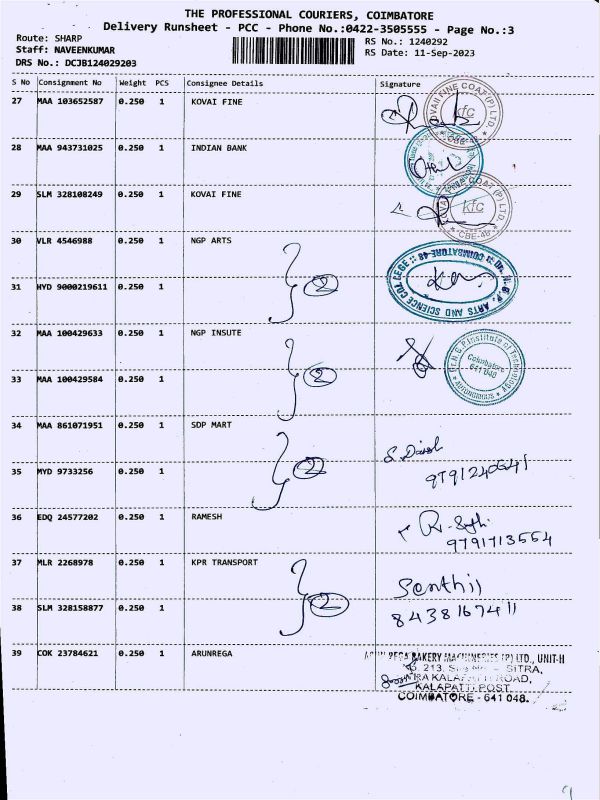 THE PROFESSIONAL COURIERS, COIMBATORE
Delivery Runsheet - PCC - Phone No.:0422-3505555 - Page No.:3
Route: SHARP
Staff: NAVEENKUMAR
DRS No.: DCJB124029203
RS No.: 1240292
RS Date: 11-Sep-2023
S No Consignment No Weight PCS Consignee Details Signature
27 MAA 103652587 0.250 1 KOVAI FINE
kfc
28 MAA 943731025 0.250 1 INDIAN BANK
29 SLM 328108249 0.250 1 KOVAI FINE
COAT (P) LTD.
kfc
CBE-48
30 VLR 4546988 0.250 1 NGP ARTS
ARTS AND SCIENCE COLLEGE :: COIMBATORE-48
31 HYD 9000219611 0.250 1
2
32 MAA 100429633 0.250 1 NGP INSUTE
Dr. N.G.P. Institute of Technology
Coimbatore
641 048
AUTONOMOUS
33 MAA 100429584 0.250 1
2
34 MAA 861071951 0.250 1 SDP MART
35 MYD 9733256 0.250 1
2
36 EDQ 24577202 0.250 1 RAMESH
9791713554
37 MLR 2268978 0.250 1 KPR TRANSPORT
Senthil
38 SLM 328158877 0.250 1
2
8438167411
39 COK 23784621 0.250 1 ARUNREGA
BAKERY MACHINERIES (P) LTD., UNIT-II
213, SITRA,
ROAD,
KALAPATTI POST
COIMBATORE - 641 048.